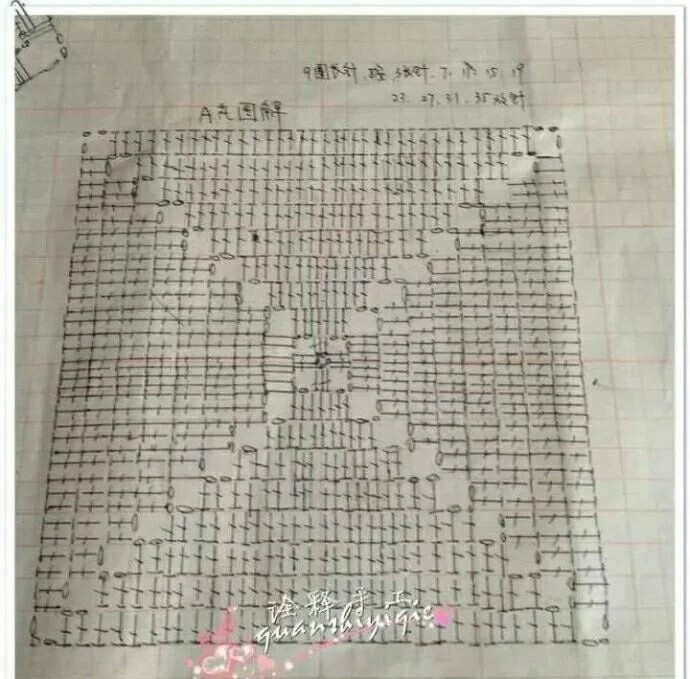 9圈长针,按,3长针.7.11.15.19
23.27.31.35放针
A花图解
诠释手工
quanshiyiqie